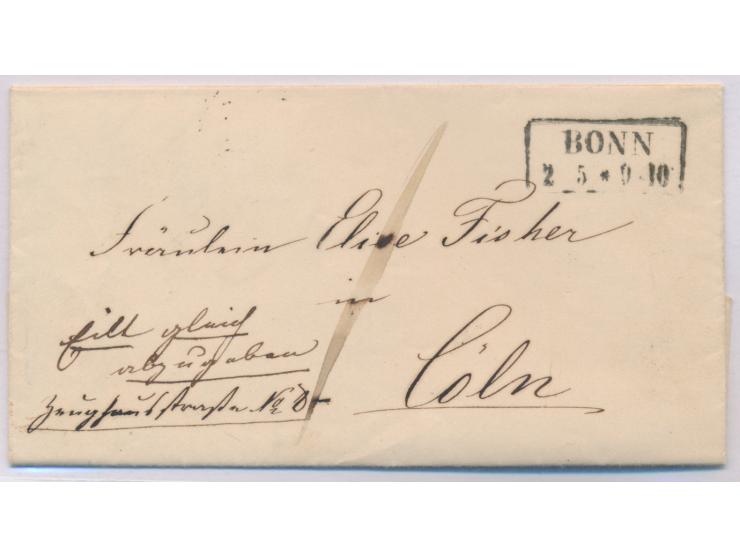 BONN
2 5 * 9-10
Fräulein Elise Fisher
in
Cöln
Eilt gleich
abzugeben
Zeughausstraße No